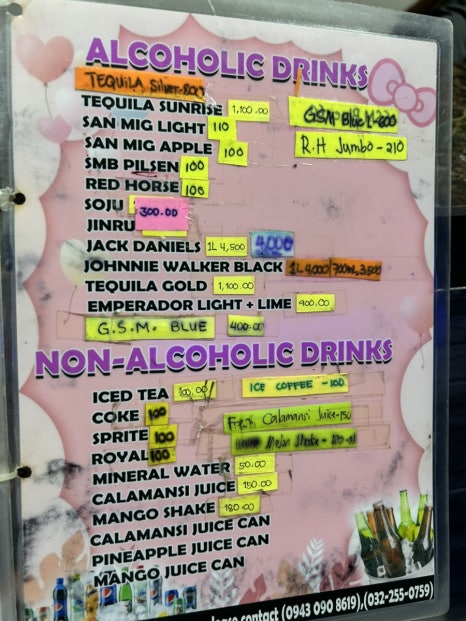 ALCOHOLIC DRINKS
TEQUILA Silver-800
TEQUILA SUNRISE 1,100.00
SAN MIG LIGHT 110
SAN MIG APPLE 100
SMB PILSEN 100
RED HORSE 100
GSM Blue
R.H Jumbo - 210
SOJU
300.00
JINRU
JACK DANIELS 1L 4,500 4,000
JOHNNIE WALKER BLACK 1L 4,000 700mL 3,500
TEQUILA GOLD 1,100.00
EMPERADOR LIGHT + LIME 900.00
G.S.M. BLUE 400.00
NON-ALCOHOLIC DRINKS
ICED TEA 100.00
COKE 100
SPRITE 100
ROYAL 100
MINERAL WATER 50.00
CALAMANSI JUICE 150.00
MANGO SHAKE 180.00
CALAMANSI JUICE CAN
PINEAPPLE JUICE CAN
MANGO JUICE CAN
ICE COFFEE - 100
Calamansi Juice-150
Melon Shake
contact (0943 090 8619),(032-255-0759)